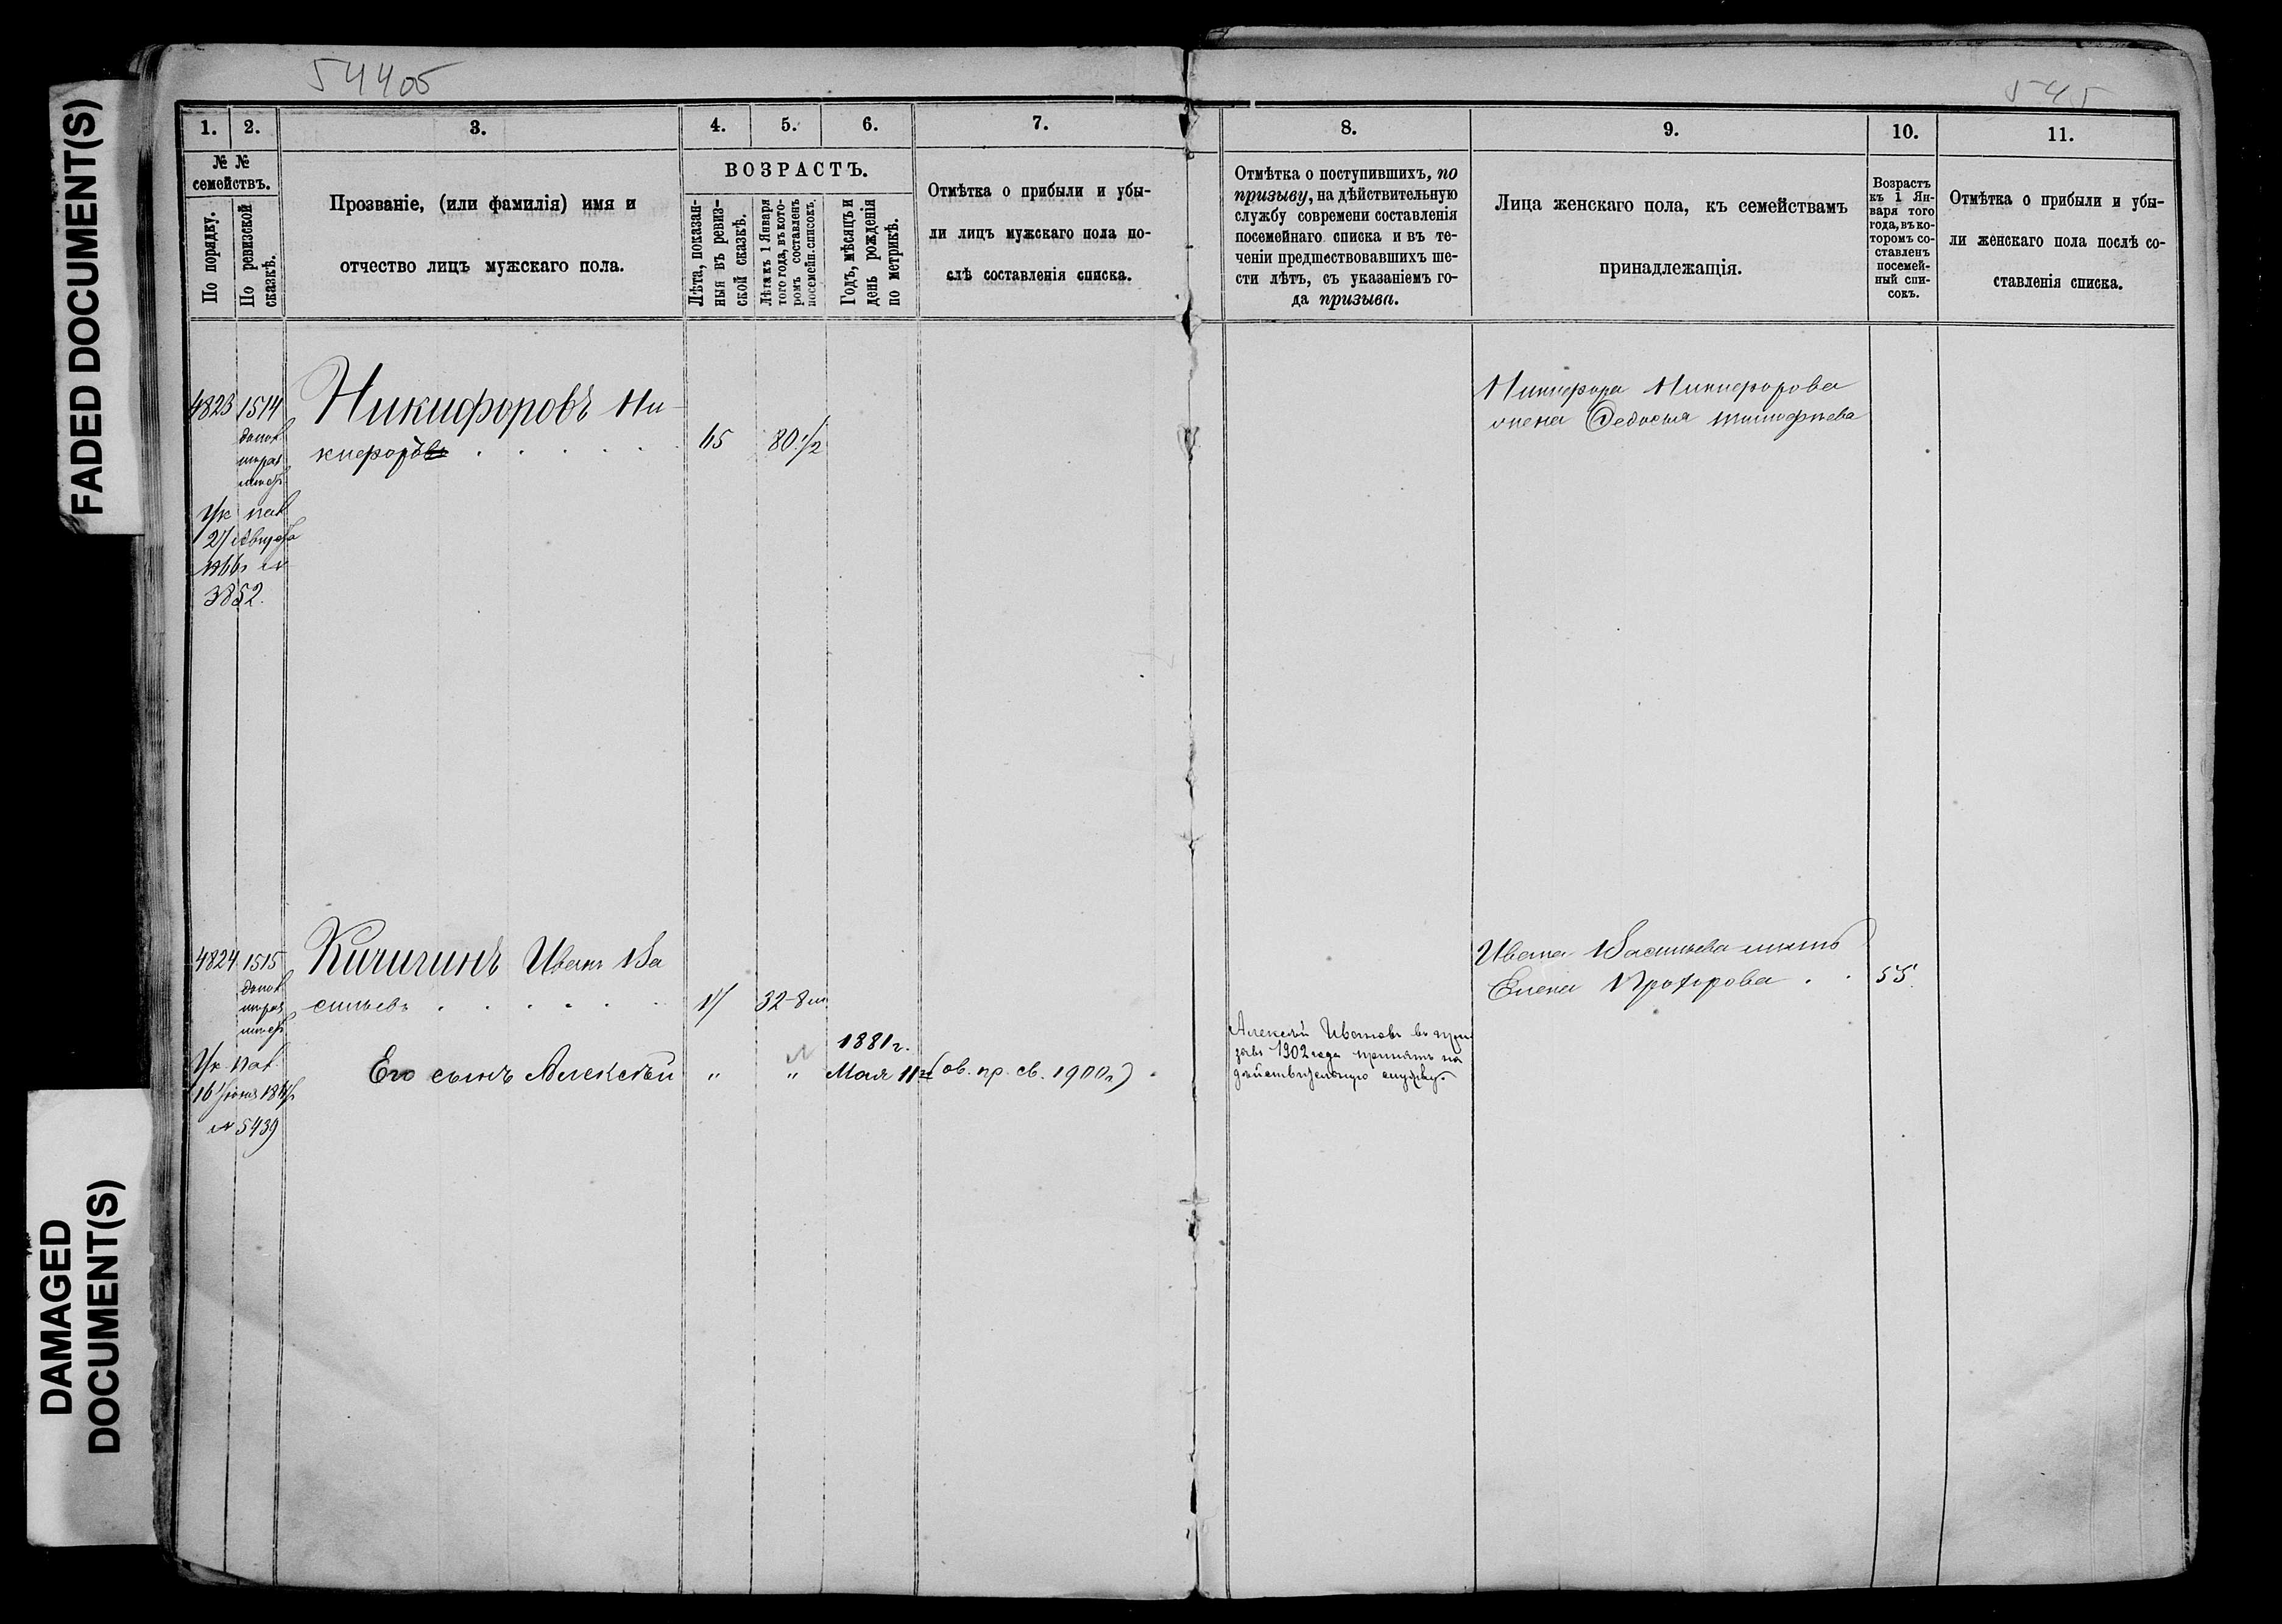 FADED DOCUMENT(S)
DAMAGED
DOCUMENT(S)
54405
545
1.
2.
3.
4.
5.
6.
7.
8.
9.
10.
11.
№ №
семействъ.
По порядку.
По ревизской
сказкѣ.
Прозваніе, (или фамилія) имя и
отчество лицъ мужскаго пола.
ВОЗРАСТЪ.
Лѣта, показан-
ныя въ ревиз-
ской сказкѣ.
Лѣта къ 1 Января
того года, въ кото-
ромъ составленъ
посемейн. списокъ.
Годъ, мѣсяцъ и
день рожденія
по метрикѣ.
Отмѣтка о прибыли и убы-
ли лицъ мужскаго пола по-
слѣ составленія списка.
Отмѣтка о поступившихъ, по
призыву, на дѣйствительную
службу современи составленія
посемейнаго списка и въ те-
ченіи предшествовавшихъ ше-
сти лѣтъ, съ указаніемъ го-
да призыва.
Лица женскаго пола, къ семействамъ
принадлежащія.
Возрастъ
къ 1 Ян-
варя того
года, въ ко-
торомъ со-
ставленъ
посемей-
ный спи-
сокъ.
Отмѣтка о прибыли и убы-
ли женскаго пола послѣ со-
ставленія списка.
4823 1514
Никифоровъ Ни-
кифоровъ
65
80 1/2
Ук пал
27 Августа
1866
3852.
Никифора Никифорова
жена Федосья Тимофѣева
4824 1515
Кичигинъ Иванъ Ва
сильевъ
17
32-8 м
Ук пал
16 Іюня
№ 5439
Его сынъ Алексѣй
"
"
1881 г.
Мая 11
(ов. пр. св. 1900 г)
Алексѣй Ивановъ въ при
зывъ 1902 года принятъ на
дѣйствительную службу.
Ивана Васильева мать
Елена Прохорова
55.